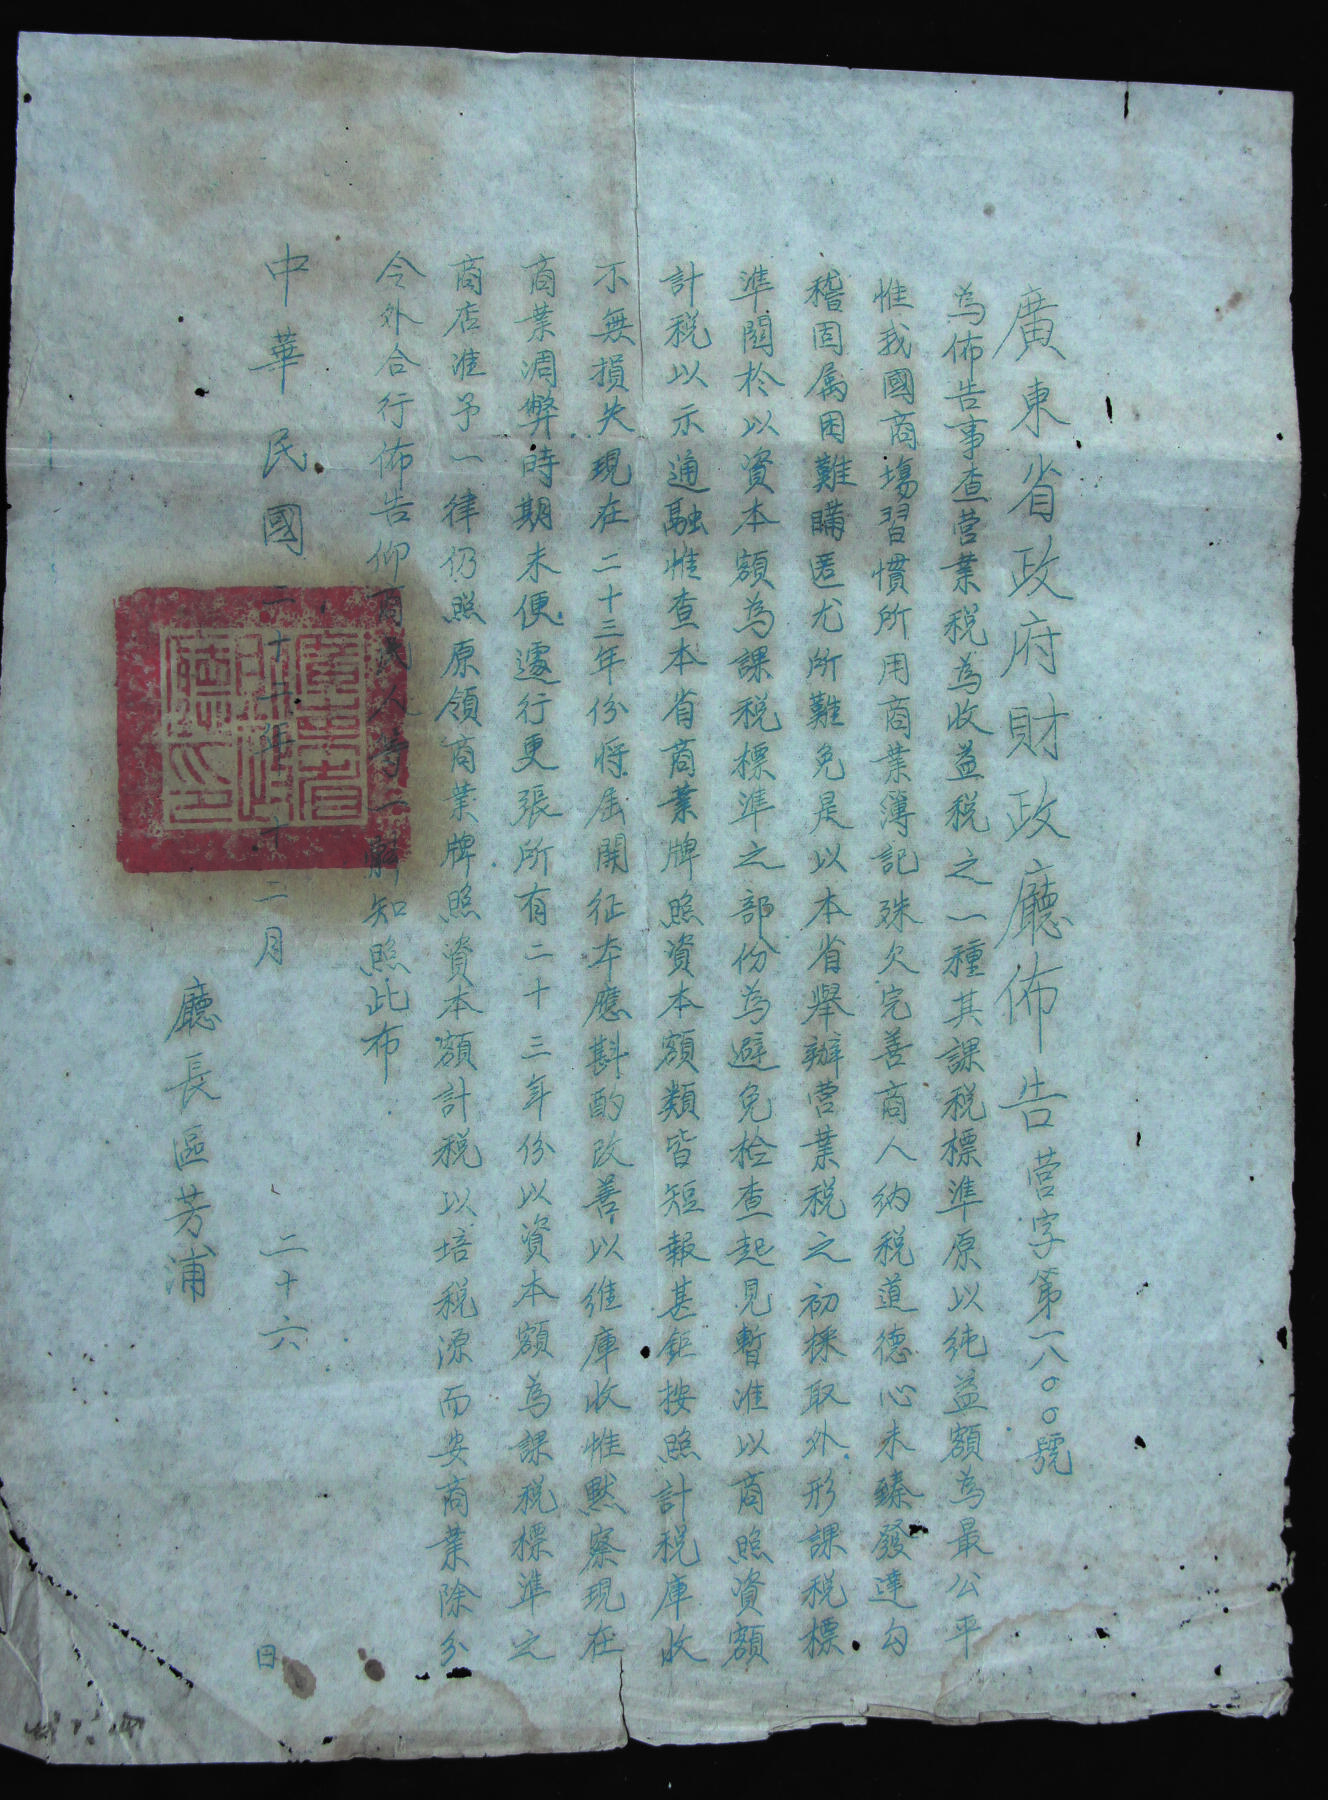 廣東省政府財政廳佈告營字第一八〇〇號
為佈告事查营業税為收益税之一種其課税標準原以純益額為最公平
惟我國商塲習慣所用商業簿記殊欠完善商人納税道德心未臻發達勾
稽固属困難瞞匿尤所難免是以本省舉辦营業税之初採取外形課税標
準關於以資本額為課税標準之部份為避免檢查起見暫准以商照資額
計税以示通融惟查本省商業牌照資本額類皆短報甚鉅按照計税庫收
不無損失現在二十三年份將屆開征本應斟酌改善以維庫收惟默察現在
商業凋弊時期未便遽行更張所有二十三年份以資本額為課税標準之
商店准予一律仍照原領商業牌照資本額計税以培税源而安商業除分
令外合行佈告仰商民人等一體知照此布
中華民國二十年十二月二十六日
廳長區芳浦
廣東省財政廳印